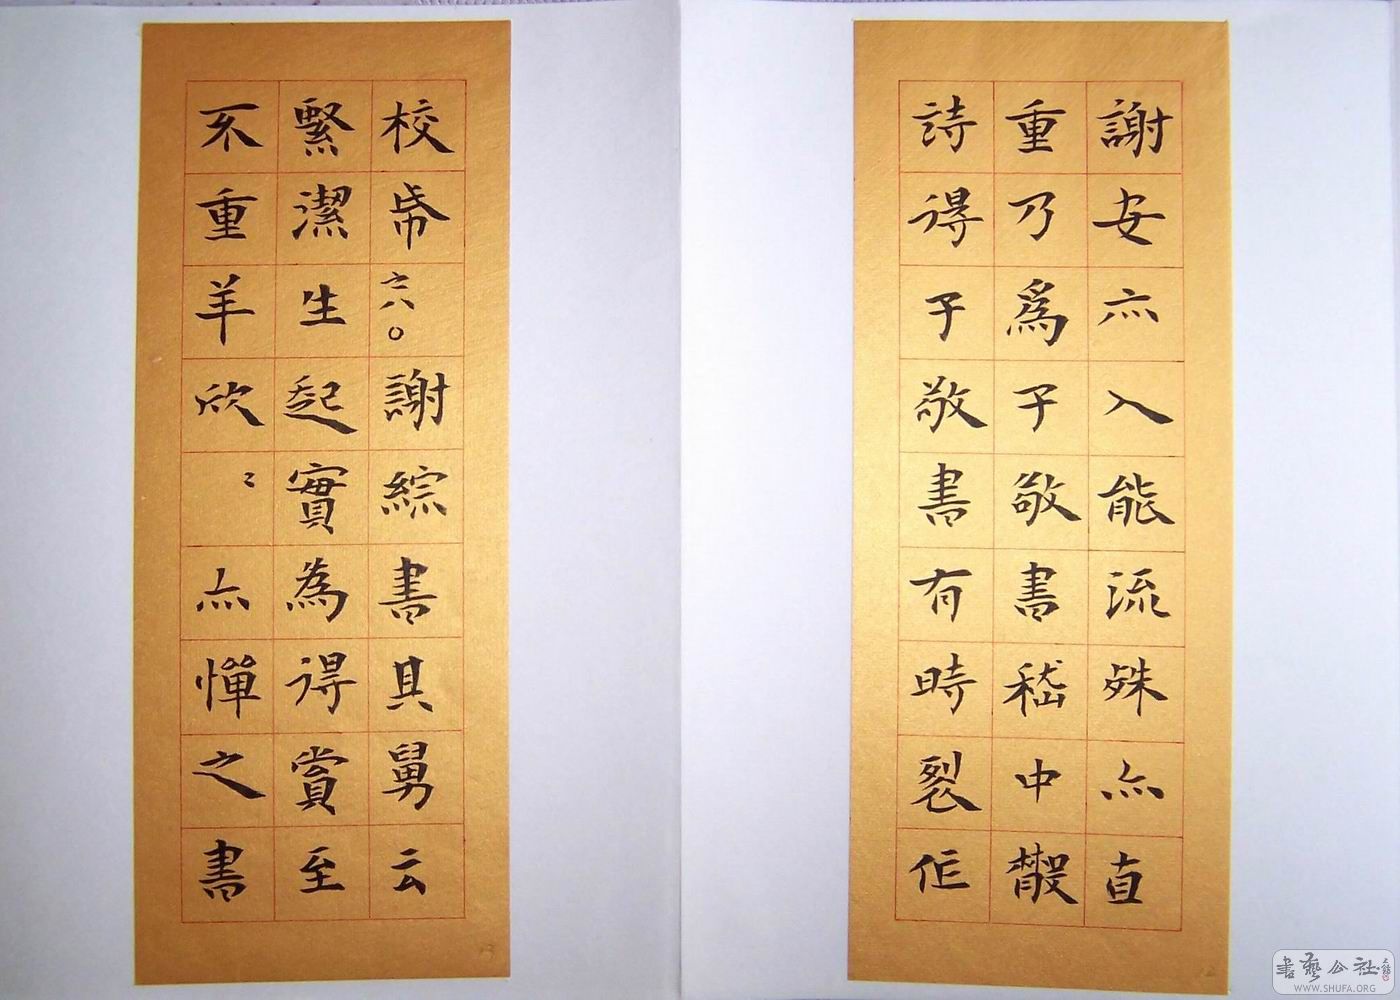 謝安亦入能流殊亦直
重乃爲子敬書嵇中散
詩得子敬書有時裂作
校帋 謝綜書其舅云
緊潔生起實為得賞至
不重羊欣〻亦憚之書
書藝公社
WWW.SHUFA.ORG